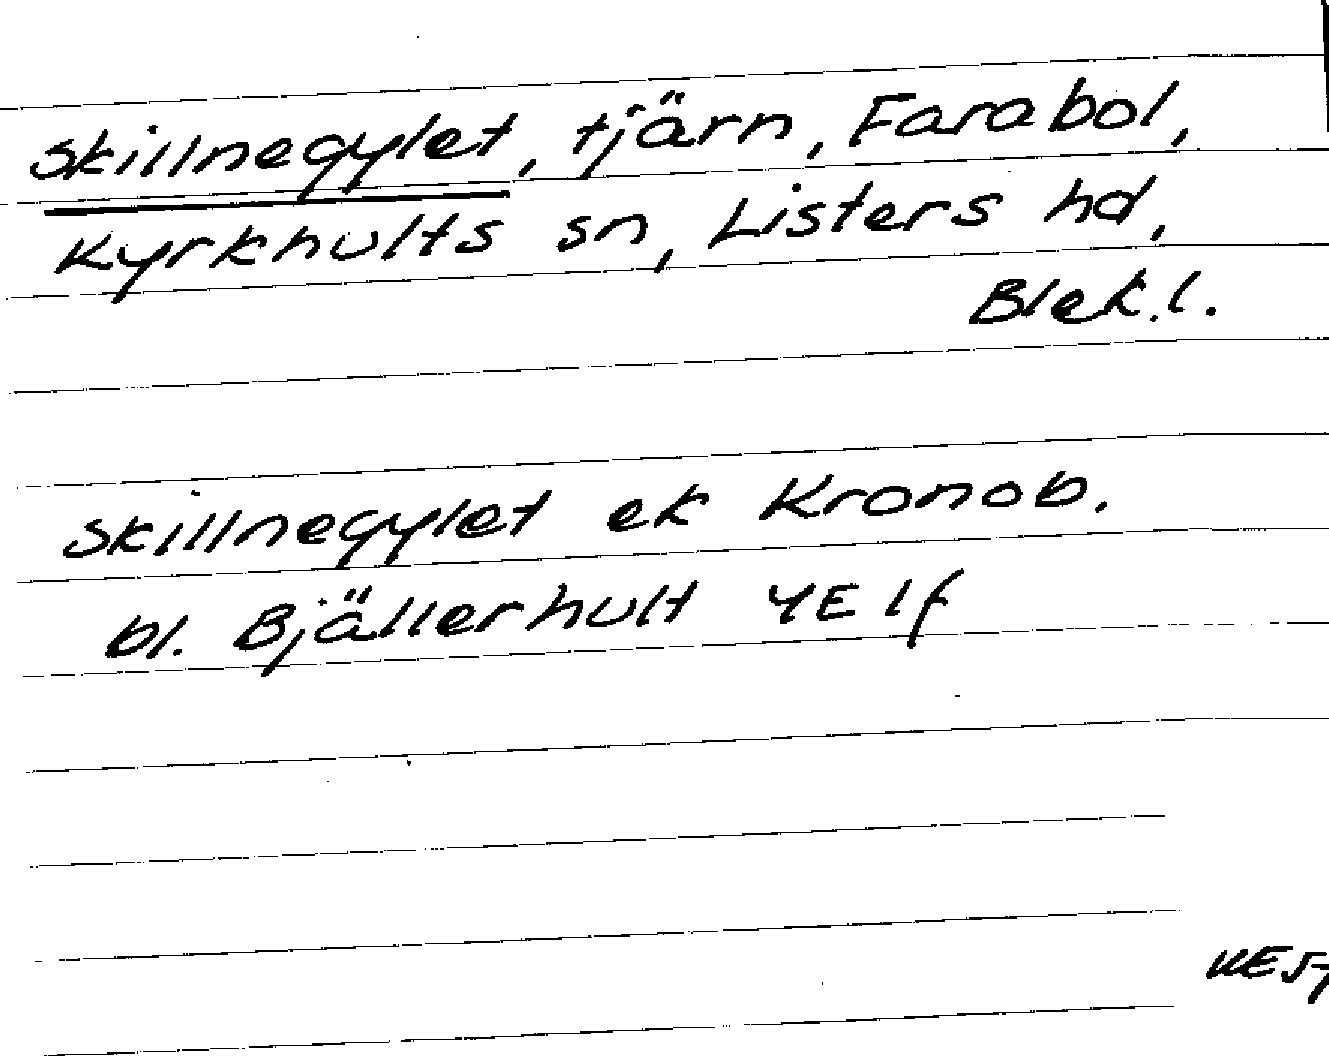 Skillnegylet, tjärn, Farabol,
Kyrkhults sn, Listers hd,
Blek.l.
Skillnegylet ek Kronob.
bl. Bjällerhult 4E lf